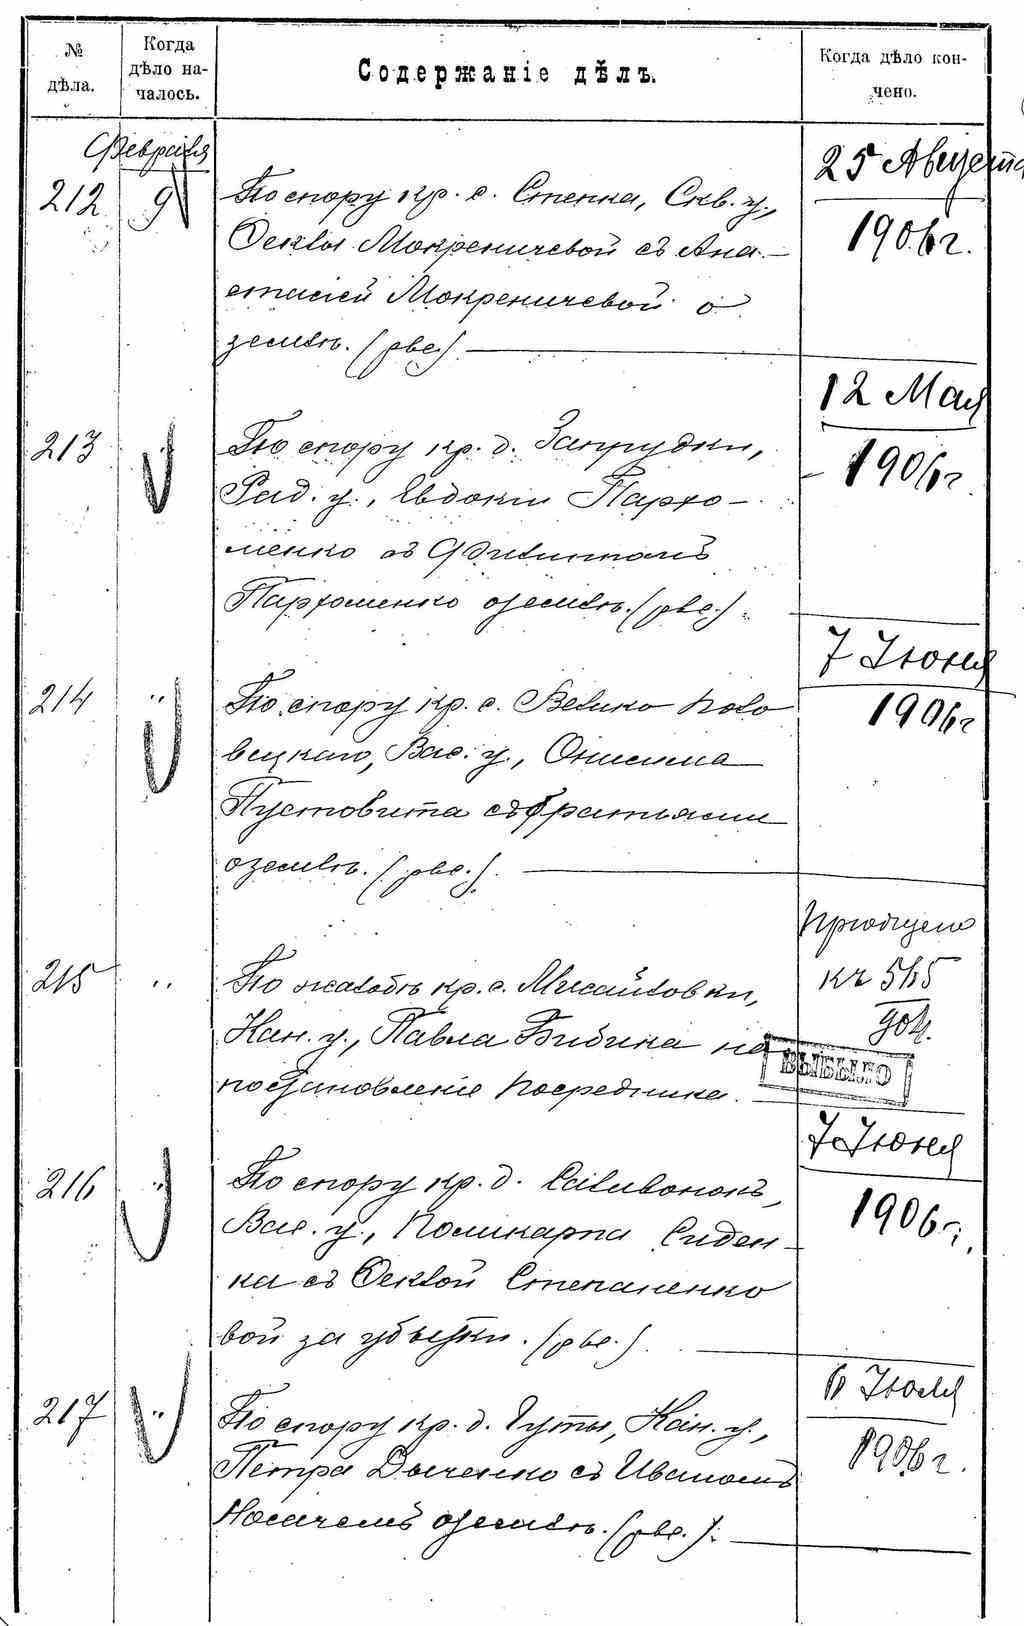 № дѣла.
Когда дѣло на-
чалось.
Содержаніе дѣлъ.
Когда дѣло кон-
чено.
Февраля
212
9
По спору кр. с. Степка, Скв. у.,
Феклы Мокреничевой съ Ана-
стасіей Мокреничевой о
землѣ. (рве.)
25 Августа
1906 г.
213
По спору кр. д. Запрудки,
Рад. у., Евдокіи Пархо-
менко съ Филиппомъ
Пархоменко о землѣ. (рве.)
12 Мая
1906 г
214
"
По спору кр. с. Велико Поло
вецкаго, Вас. у., Онисима
Пустовита съ братьями
о землѣ. (рве.).
7 Іюня
1906 г
215
"
По жалобѣ кр. с. Михайловки,
Кан. у., Павла Бибика на
постановленіе Посредника.
Пріобщено
къ 565
ВЫБЫЛО
216
"
По спору кр. д. Саливонокъ,
Вас. у., Поликарпа Сиден-
ка съ Феклой Степаненко
вой за убытки. (рве.)
7 Іюня
1906 г.
217
"
По спору кр. д. Гуты, Кан. у.,
Петра Дьяченко съ Иваномъ
Носачемъ о землѣ. (рве.).
6 Іюля
1906 г.